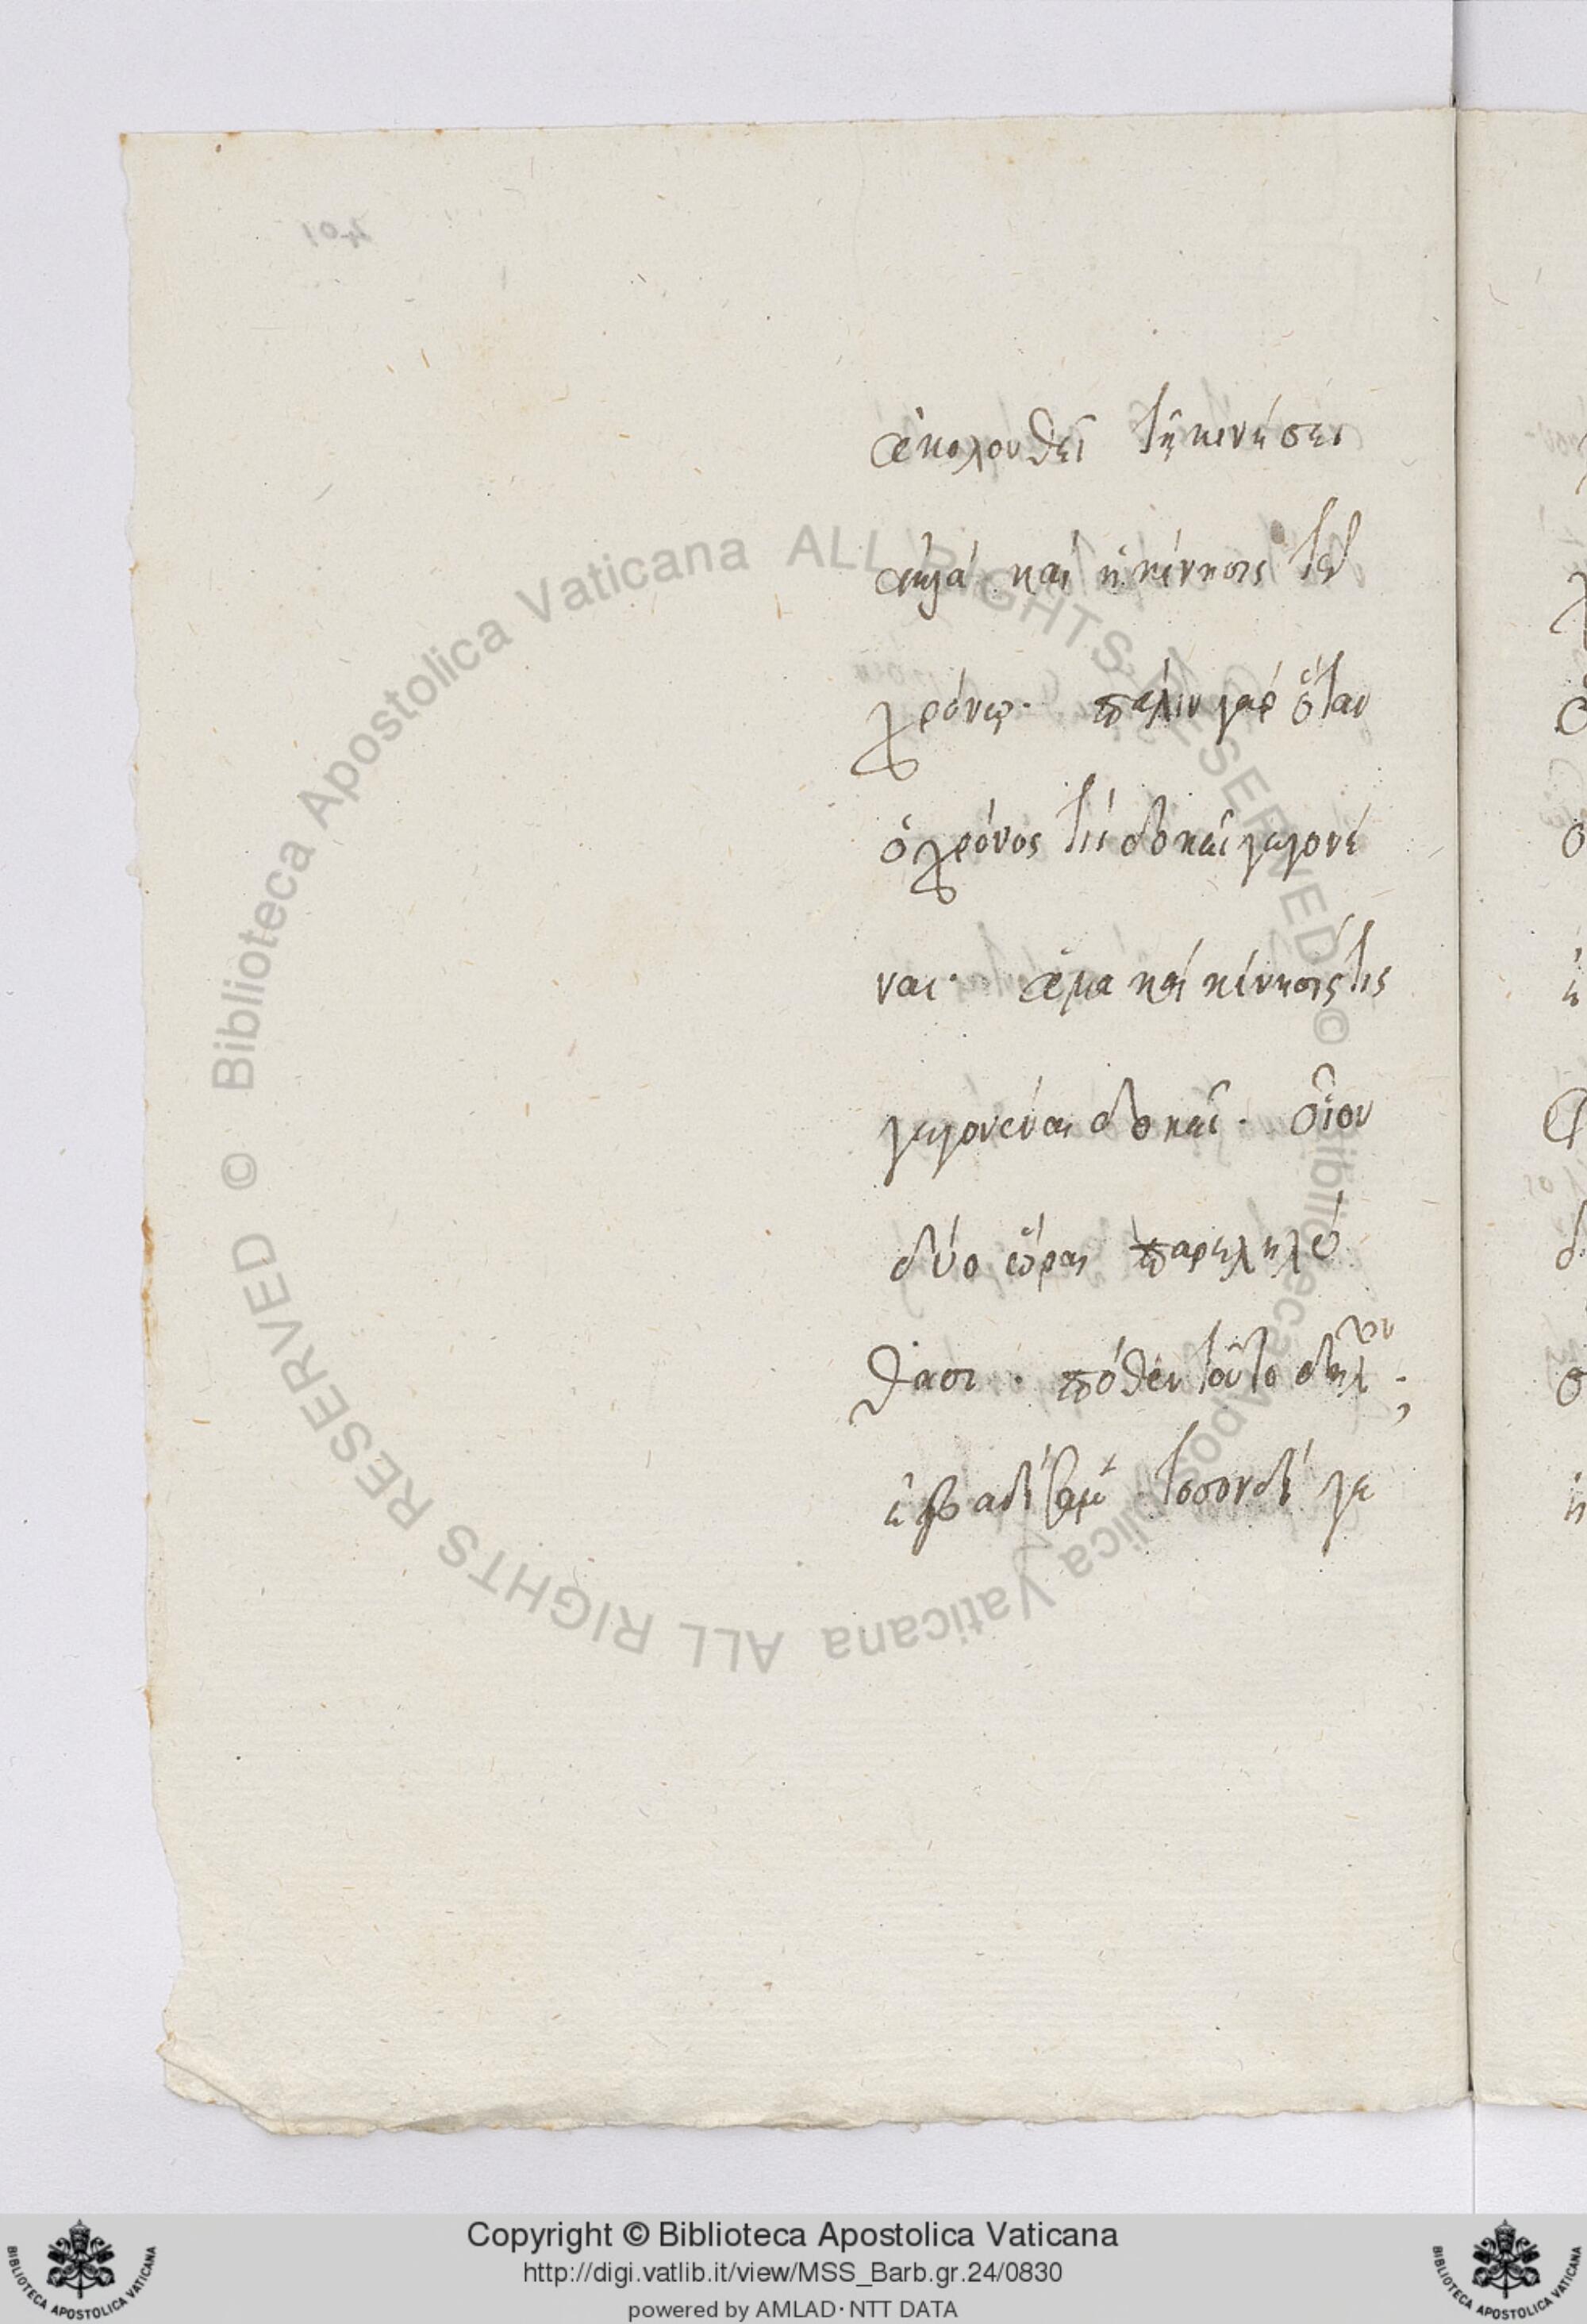 401
ἀκολουθεῖ τῇ κινήσει
ἀλλὰ καὶ ἡ κίνησις τῷ
χρόνῳ· πάλιν γὰρ ὅταν
ὁ χρόνος τίς δοκεῖ γεγονέ
ναι· ἅμα καὶ κίνησις τις
γεγονέναι δοκεῖ· οἷον
δύο ὧραι παρεληλύ
θασι· πόθεν τοῦτο δῆλον;
ἐβαδίσαμεν τοσόνδε γε
© Biblioteca Apostolica Vaticana ALL RIGHTS RESERVED © Biblioteca Apostolica Vaticana ALL RIGHTS RESERVED
Copyright © Biblioteca Apostolica Vaticana
http://digi.vatlib.it/view/MSS_Barb.gr.24/0830
powered by AMLAD·NTT DATA
BIBLIOTECA APOSTOLICA VATICANA
BIBLIOTECA APOSTOLICA VATICANA